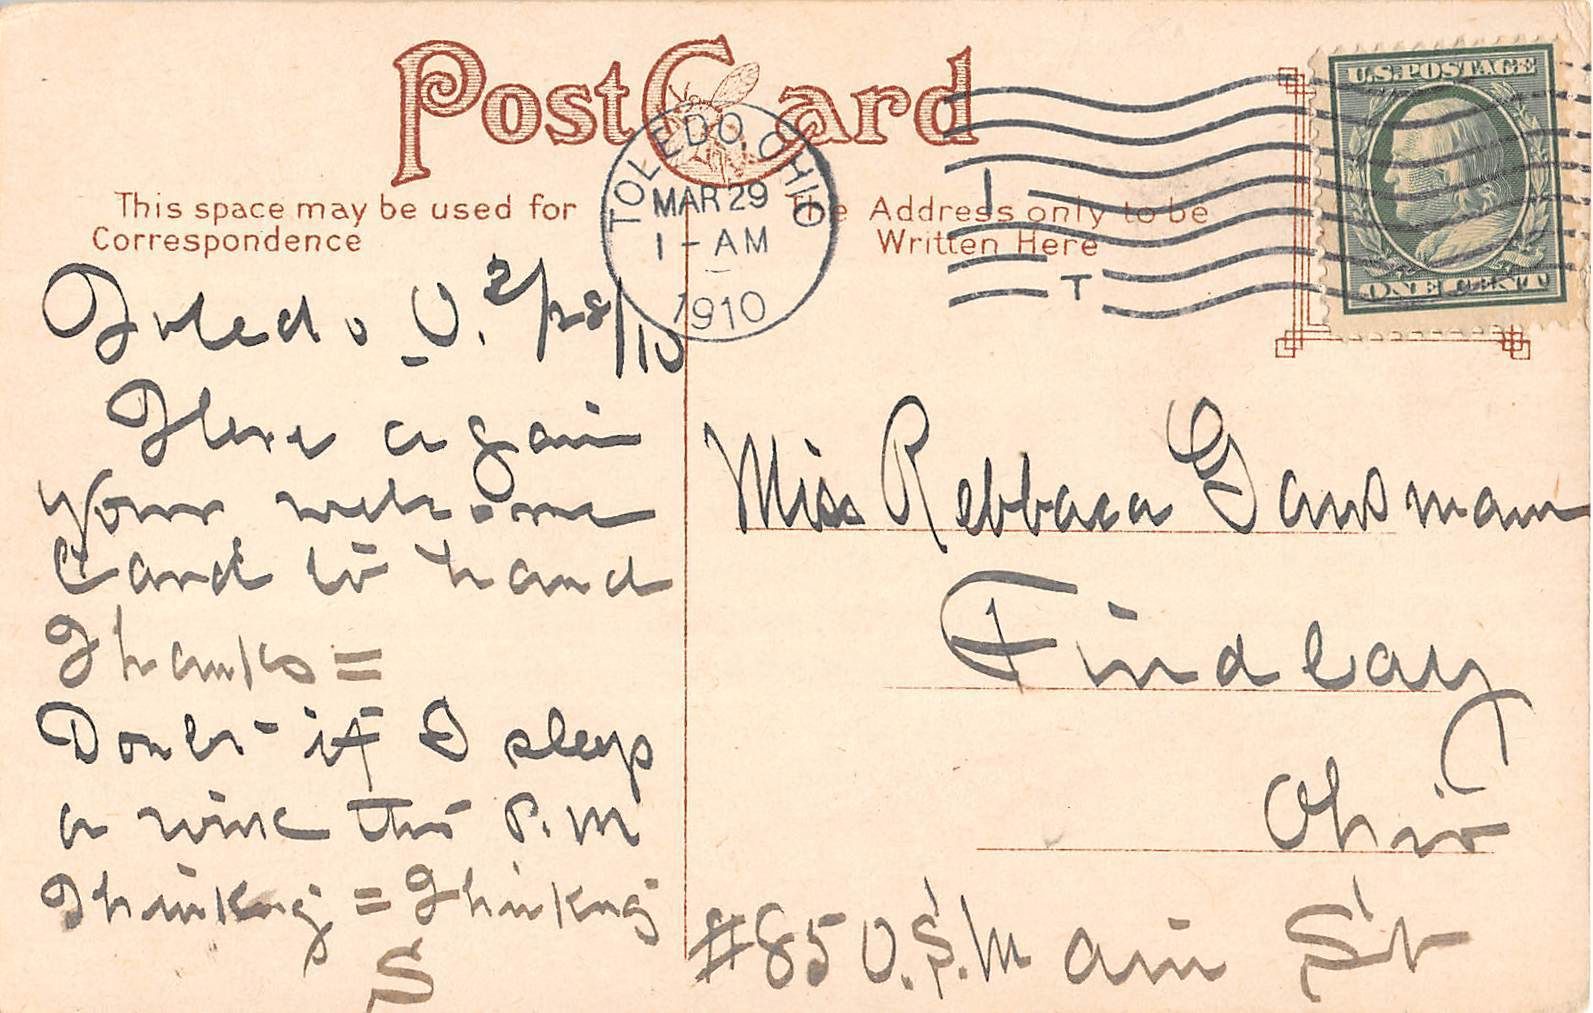 Post Card
This space may be used for
Correspondence
The Address only to be
Written Here
TOLEDO, OHIO
MAR 29
1 - AM
1910
T
U.S. POSTAGE
ONE CENT
Toledo O. 3/28/10
Here again
your welcome
Card to hand
Thanks =
Doubt if I sleep
a wink this P.M
Thinking = Thinking
S
Miss Rebbaca Gausman
Findlay
Ohio
#850.S.Main St